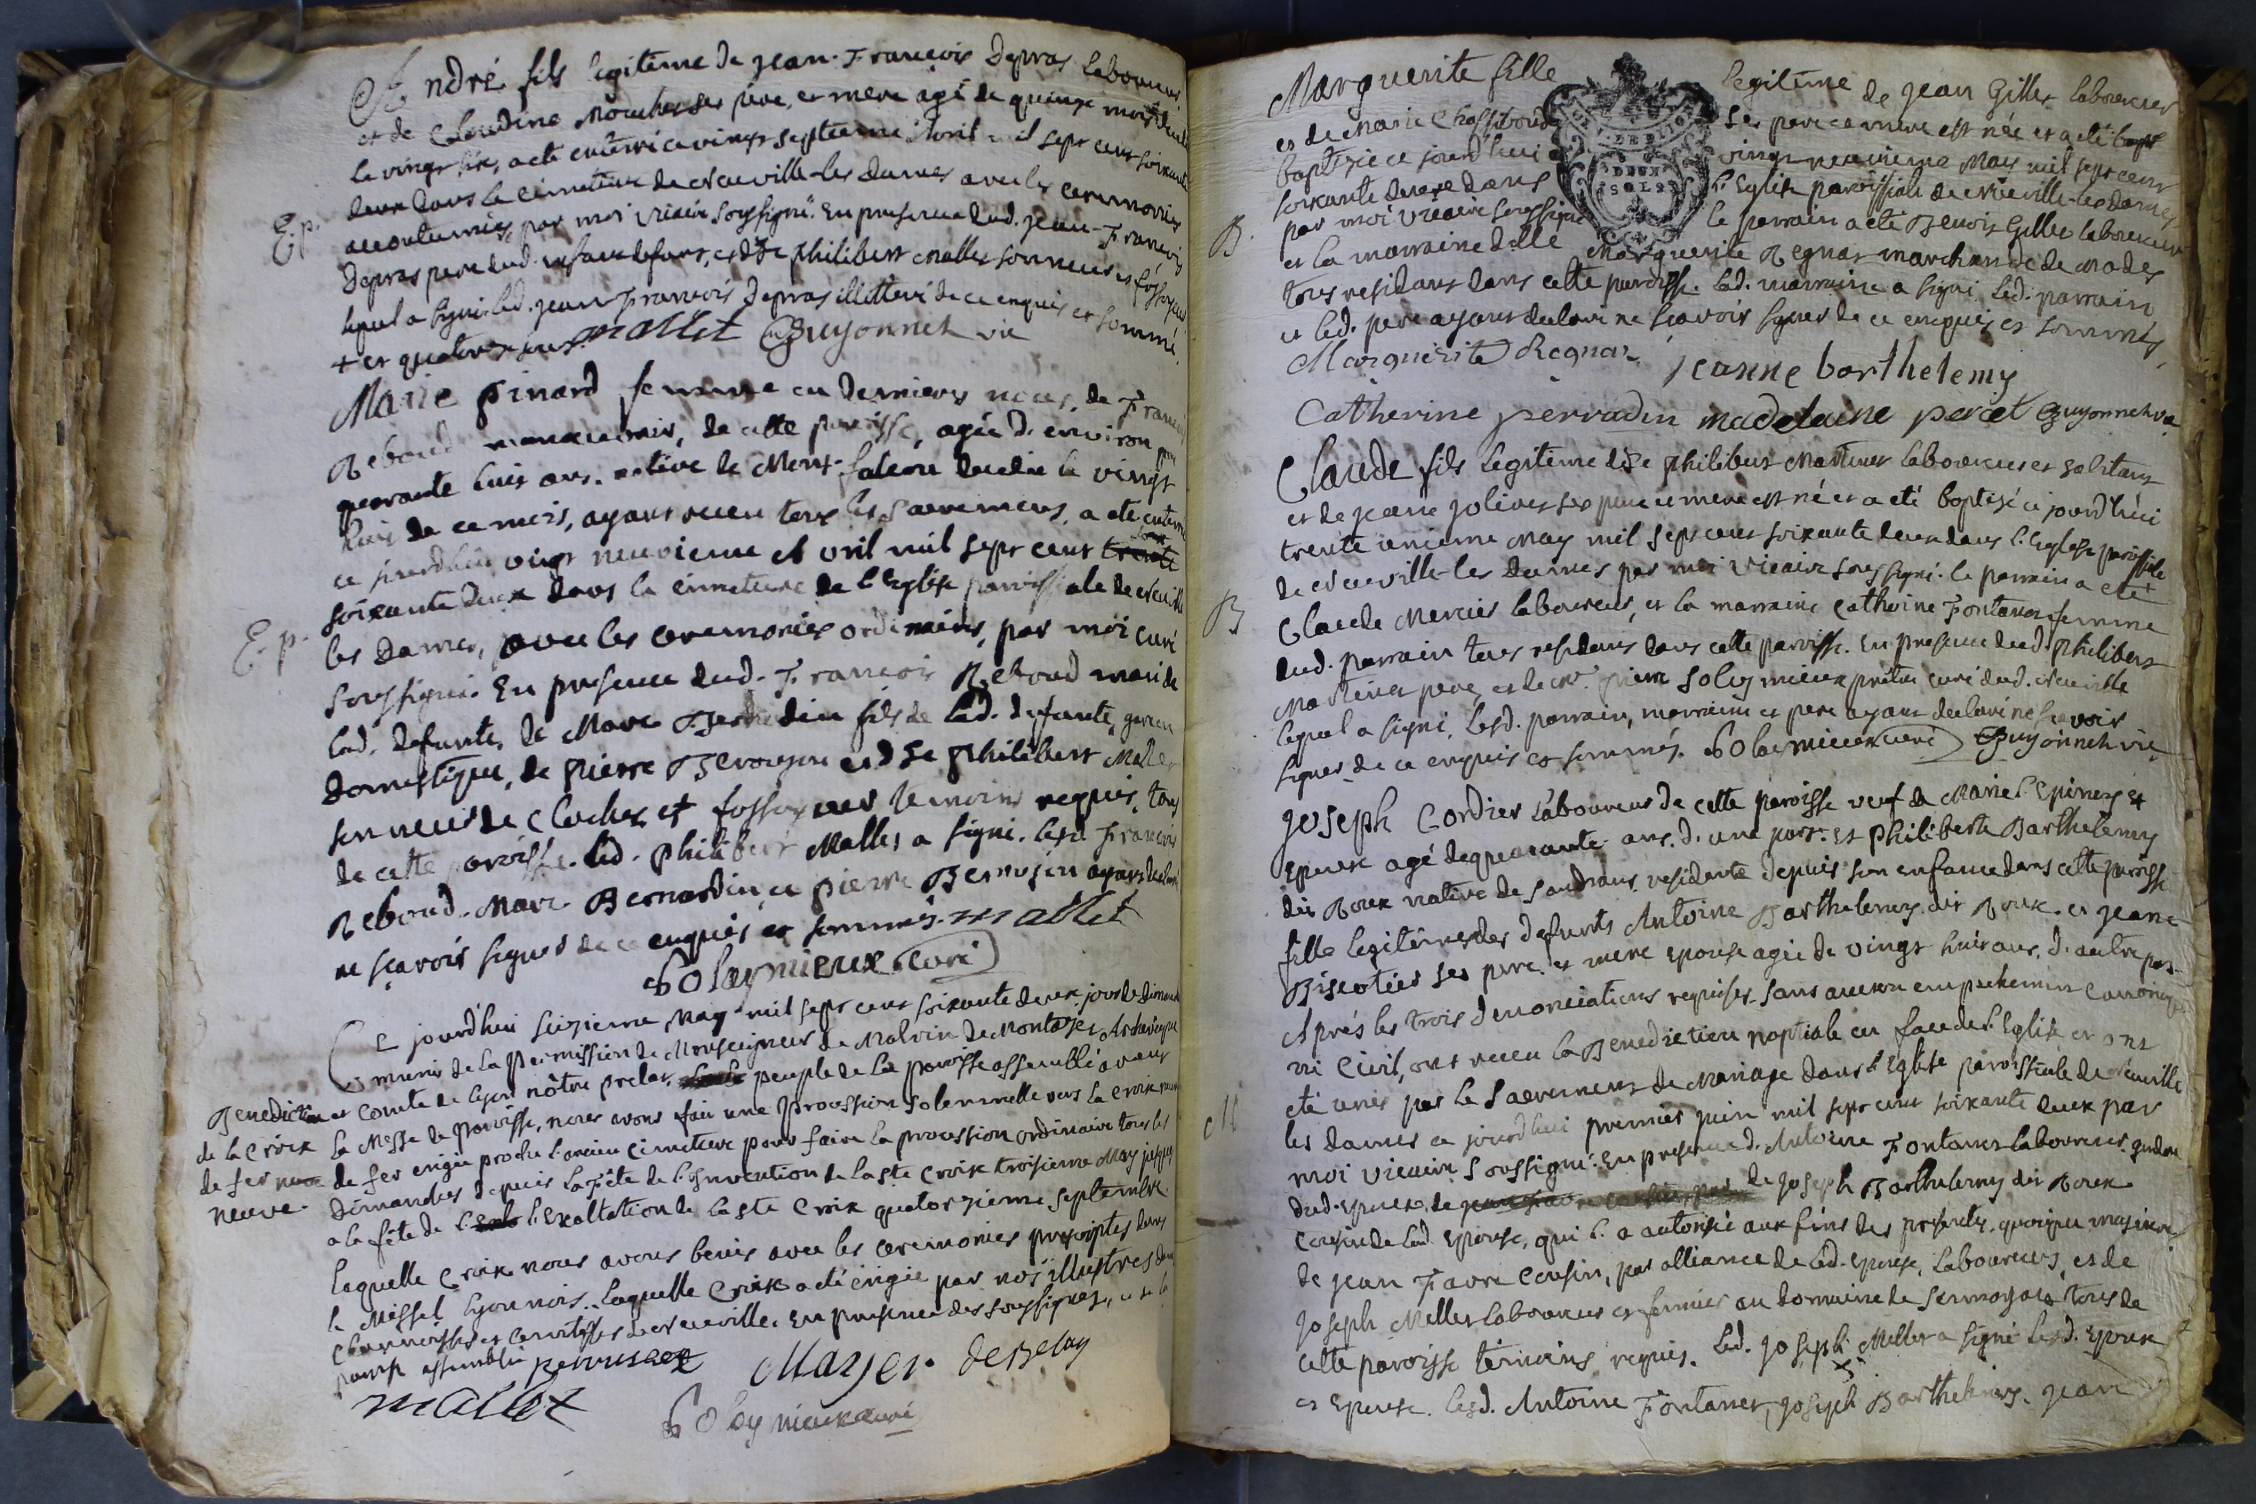 André fils legitime de jean-François Depras laboureur,
et de Claudine Moucher ses père, et mere agé de quinze mois decedé
le vingt six, a été enterré ce vingt septieme Avril mil sept cent soixante
deux dans le cimetiere de Neuville-les Dames avec les ceremonies
accoutumées par moi vicaire soussigné. En presence dud. jean-François
Depras pere dud. enfant defunt, et de Philibert Mallet sonneur et fossoyeur
lequel a signé led. jean François Depras illitteré de ce enquis et sommé.
+ et quatorze jours mallet Guyonnet vic
E. p.
Marie Pinard femme en dernieres noces de François
Reboud manœuvrier, de cette paroisse, agée d'environ
quarante huit ans. native de Mont-falcon decedée le vingt
huit de ce mois, ayant receu tous les Sacremens, a eté enterrée
ce jourd'hui vingt neuvieme Avril mil sept cent trente
soixante deux dans le cimetiere de l'Eglise paroissiale de Neuville
les Dames, avec les ceremonies ordinaires, par moi curé
soussigné. En presence dud. François Reboud mari de
lad. defunte, de Marc Bernardin fils de lad. defunte, garçon
domestique, de pierre Bervojon et de Philibert Mallet
sonneur de cloches et fossoyeur temoins requis, tous
de cette paroisse. Led. Philibert Mallet a signé. lesd. François
Reboud. Marc Bernardin et pierre Bervojon ayant declaré
ne sçavoir signer de ce enquis et sommés. mallet
Solaymieux curé
E. p.
Ce jourd'hui seizieme May mil sept cent soixante deux jour de dimanche
munis de la permission de Monseigneur de Malvin de Montazet Archevêque
et Comte de Lyon nôtre prelat, peuple de la paroisse assemblé avant
la Messe de paroisse, nous avons fait une procession solennelle vers la croix
de fer erigée proche l'ancien cimetiere pour faire la procession ordinaire tous les
dimanches depuis la fête de l'Invention de la ste Croix troisieme May jusques
a la fête de l' l'Exaltation de la ste Croix quatorzieme septembre.
laquelle Croix nous avons benie avec les ceremonies prescriptes dans
le Missel Lyonnois. Laquelle Croix a été érigée par nos illustres dames
Chanoinesses et Comtesses de Neuville. En presence des soussignés, et de la
paroisse assemblée perrusset Mayer debelay
mallet Solaymieux curé
Benediction
de la croix
de fer
neuve.
Marguerite fille legitime de jean Gillet laboureur
et de Marie Chassiboud ses pere et mere est née et a été
baptisée ce jourd'hui vingt neuvieme May mil sept cent
soixante deux dans l'Eglise paroissiale de Neuville-les Dames
par moi vicaire soussigné le parrain a été Benoit Gillet laboureur
et la marraine dlle Marguerite Regnat marchande de modes
tous residans dans cette paroisse. Lad. marraine a signé, led. parrain
et led. pere ayant declaré ne sçavoir signer de ce enquis et sommés,
Marguerite Regnat jeanne barthelemy
Catherine perradin madelaine percet Guyonnet vic
B.
DEUX
SOLS
Claude fils legitime de Philibert Martinet laboureur et
et de jeane Jolivet ses pere et mere est né et a été baptizé ce jourd'hui
trente unieme May mil sept cent soixante deux dans l'Eglise paroissiale
de Neuville-les Dames par moi vicaire soussigné. le parrain a eté
Claude Mercier laboureur, et la marraine Catherine Fontanet femme
dud. parrain tous residans dans cette paroisse. En presence dud. Philibert
Martinet pere, et de Mre pierre Solaymieux prêtre curé dud. Neuville
lequel a signé, Lesd. parrain, marraine et pere ayant declaré ne sçavoir
signer de ce enquis et sommés. Solaymieux curé Guyonnet vic
B
Joseph Cordier laboureur de cette paroisse veuf de Marie l'Epinezy et
Epoux agé de quarante ans. d'une part. et Philiberte Barthelemy
dit Roux native de Sandrans residente depuis son enfance dans cette paroisse
fille legitime des defunts Antoine Barthelemy dit Roux. et jeane
Biscotier ses pere et mere Epouse agée de vingt huit ans. d'autre part
Aprés les trois denonciations requises sans aucun empechement canonique
ni Civil, ont receu la Benediction nuptiale en face de l'Eglise et ont
eté unis par le Sacrement de Mariage dans l'Eglise paroissiale de Neuville
les Dames ce jourd'hui premier juin mil sept cent soixante deux par
moi vicaire soussigné. En presence d'Antoine Fontanet laboureur gendre
dud. Epoux, de de Joseph Barthelemy dit Roux
cousin de lad. Epouse, qui l'a autorisée aux fins des presentes, quoique majeure,
de jean Favre Cousin, par alliance de lad. Epouse, laboureurs, et de
Joseph Mellet laboureur et fermier au domaine de Sermoyat tous de
cette paroisse témoins requis. Led. Joseph Mellet a signé lesd. Epoux
et Epouse. lesd. Antoine Fontanet, Joseph Barthelemy. Jean
M